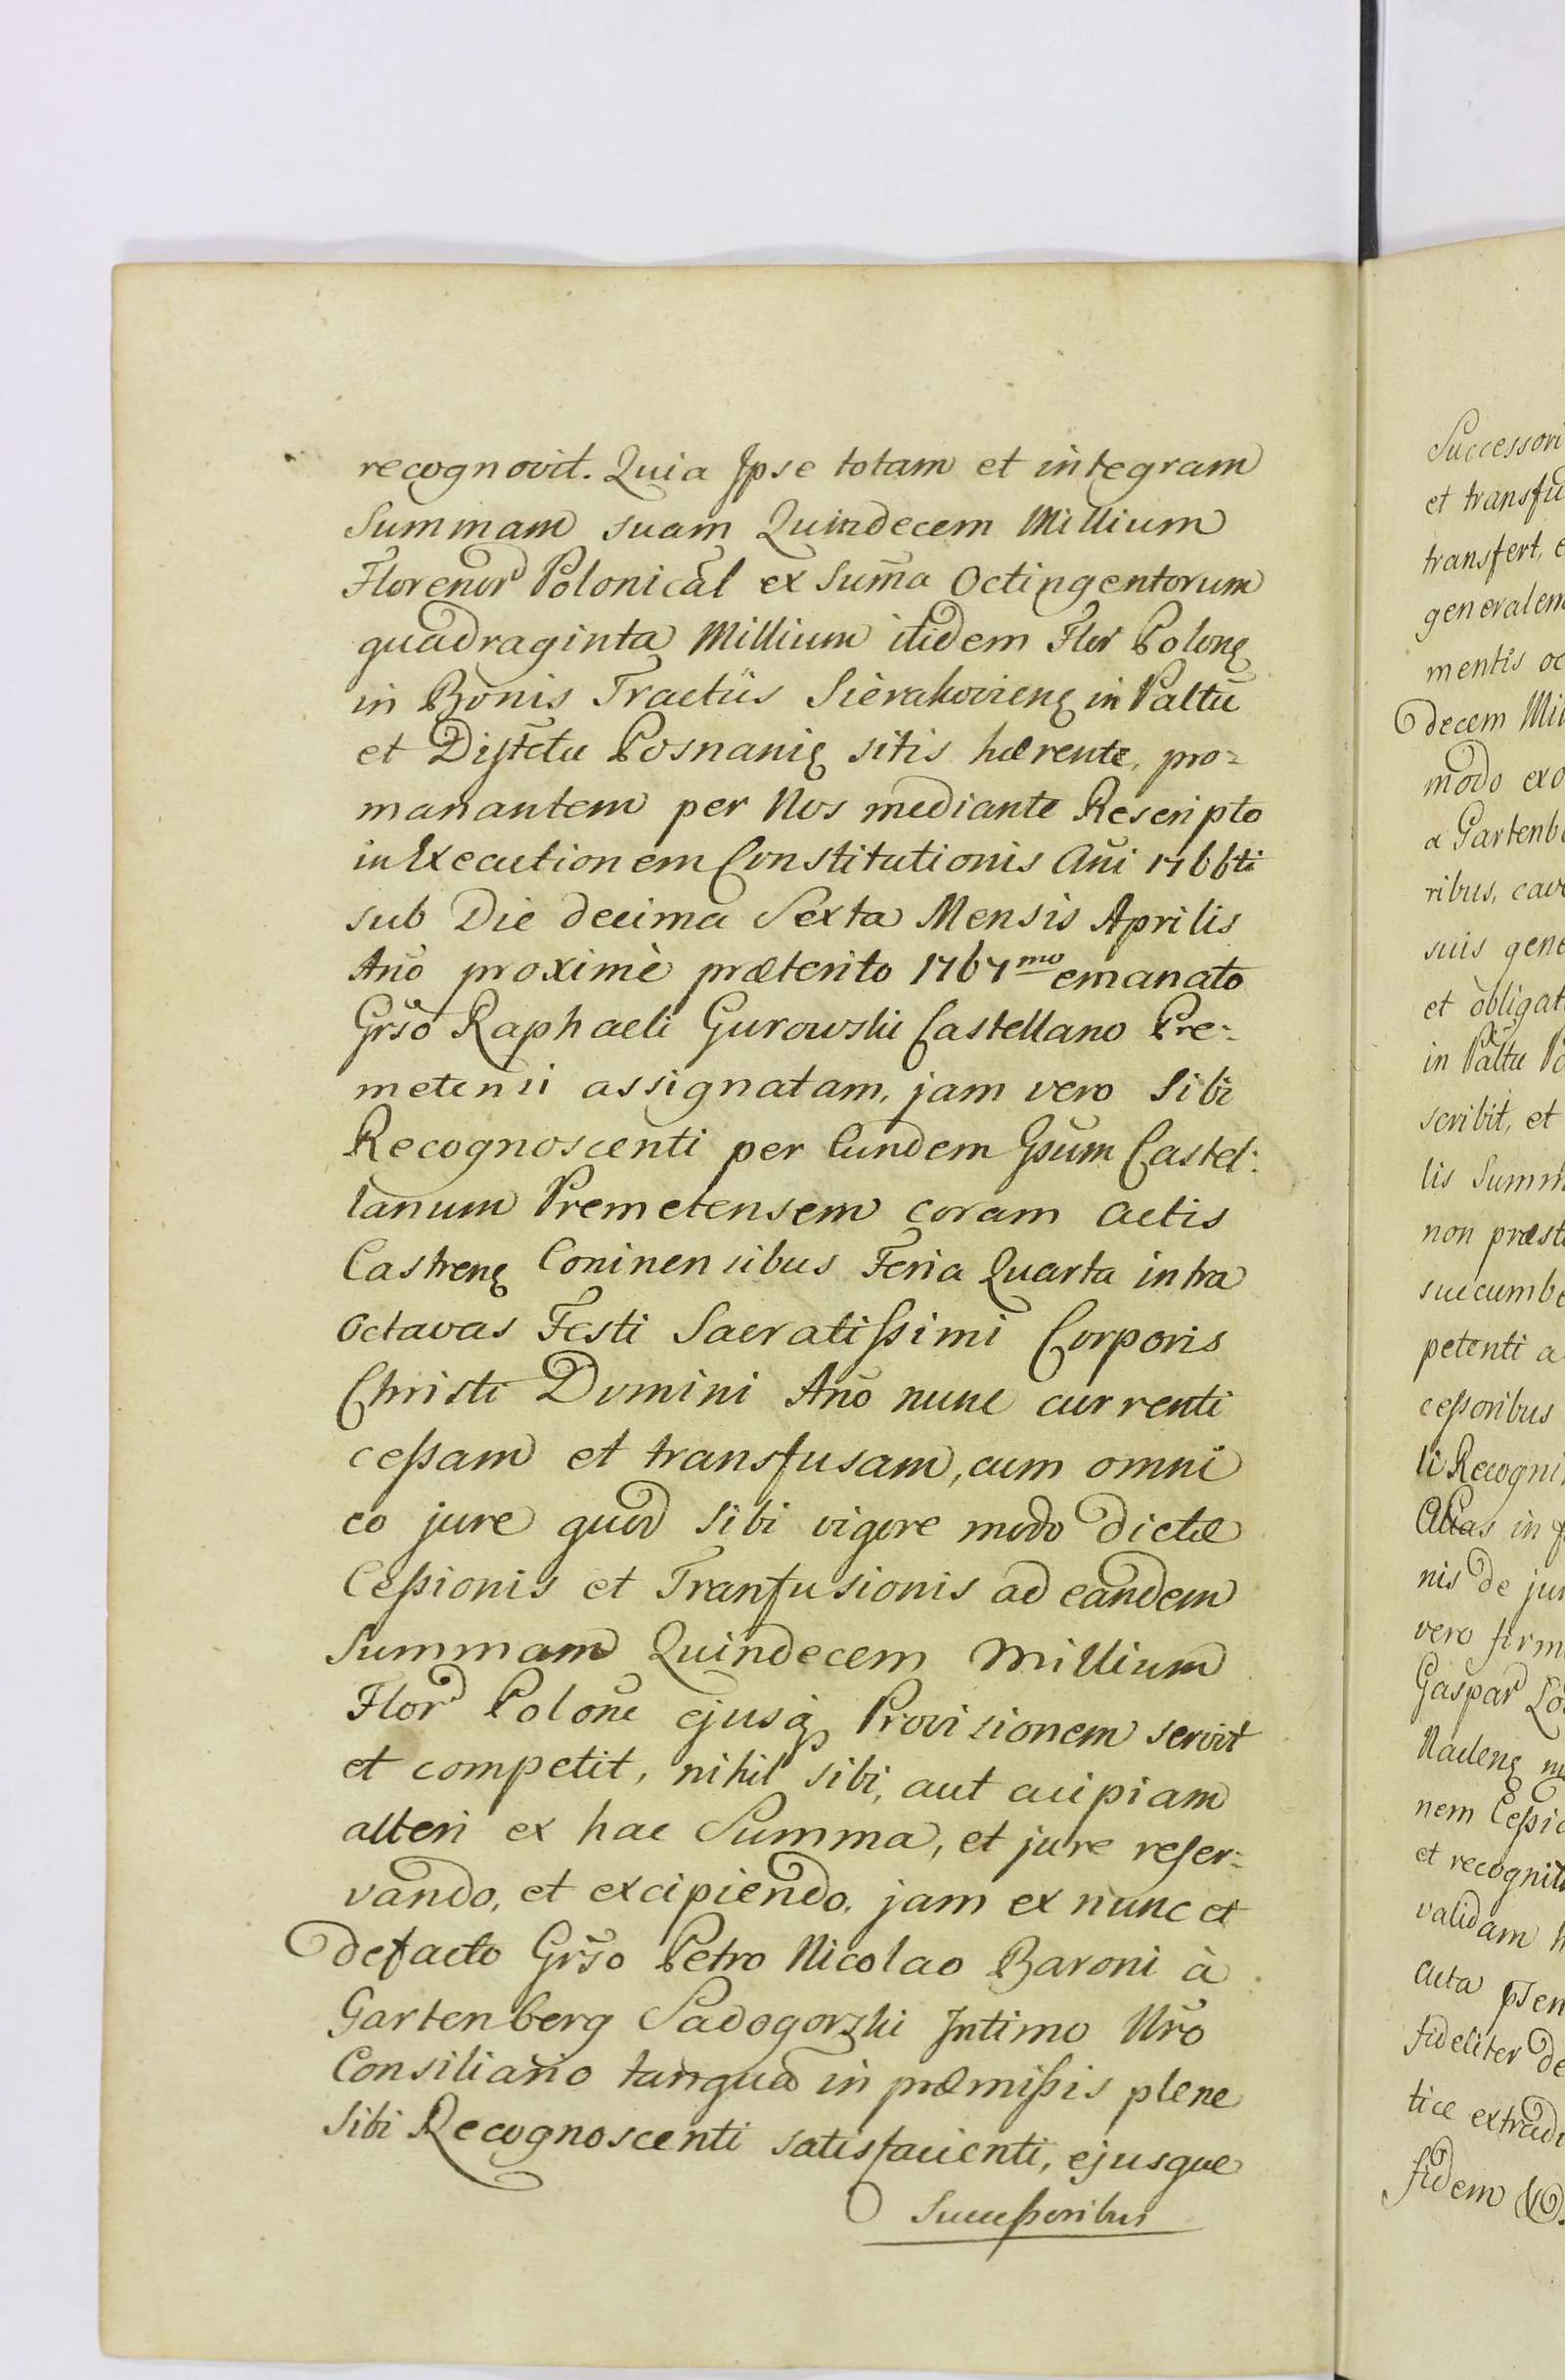 recognovit. Quia Ipse totam et integram
Summam suam Quindecem Millium
Florenor Polonical ex Sum̃a Octingentorum
quadraginta Millium itidem Flor Polonę
in Bonis Tractûs Sierakovienę in Paltũ
et Distctu Posnanię sitis hærente, pro=
manantem per Nos mediante Rescripto
in Executionem Constitutionis Añi 1766ti
sub Die decima Sexta Mensis Aprilis
Añо proximè præterito 1767mo emanato
Grs̃o Raphaeli Gurowski Castellano Pre=
metensi assignatam, jam vero Sibi
Recognoscenti per Eundem Gsũm Castel=
lanum Premetensem coram Actis
Castrenę Coninensibus Feria Quarta intra
Octavas Festi Sacratißimi Corporis
Christi Domini Añо nunc currenti
ceßam et transfusam, cum omni
eo jure quod Sibi vigore modo dictæ
Ceßionis et Tranfusionis ad eandem
Summam Quindecem Millium
Flor Polone ejusq̢ Provisionem servit
et competit, nihil sibi, aut cuipiam
alteri ex hac Summa, et jure reser=
vando, et excipiendo, jam ex nunc et
defacto Grs̃o Petro Nicolao Baroni à
Gartenberg Sadogorzki Intimo Nr̃o
Consiliario tanquã in præmißis plene
Sibi Recognoscenti satisfacienti, ejusque
Succeßoribus
Successori
et transfu
transfert, e
generalem
mentis oc
decem Mil
modo exo
a Gartenbe
ribus, cave
suis gene
et obligat
in Paltu Po
scribit, et
lis Summ
non præst
succumbe
petenti a
ceßoribus
li Recogni
Alias in f
nis de jur
vero firm
Gaspar Lo
Naclenę
nem Ceßio
et recognit
validam h
Acta
fideliter de
tice extrad
fidem